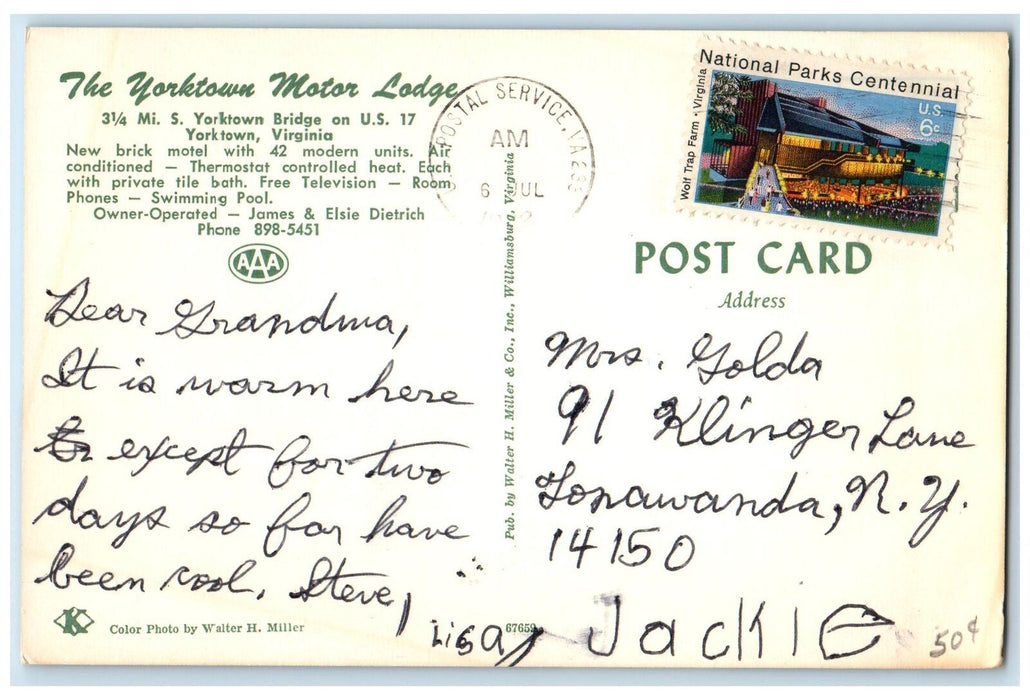 The Yorktown Motor Lodge
3¼ Mi. S. Yorktown Bridge on U.S. 17
Yorktown, Virginia
New brick motel with 42 modern units. Air
conditioned — Thermostat controlled heat. Each
with private tile bath. Free Television — Room
Phones — Swimming Pool.
Owner-Operated — James & Elsie Dietrich
Phone 898-5451
AAA
Dear Grandma,
It is warm here
except for two
days so far have
been cool. Steve,
Lisa, Jackie
K
Color Photo by Walter H. Miller
67652
Pub. by Walter H. Miller & Co., Inc., Williamsburg, Virginia
POSTAL SERVICE, VA
AM
6 JUL
National Parks Centennial
Wolf Trap Farm • Virginia
U.S.
6c
POST CARD
Address
Mrs. Golda
91 Klinger Lane
Tonawanda, N.Y.
14150
50¢